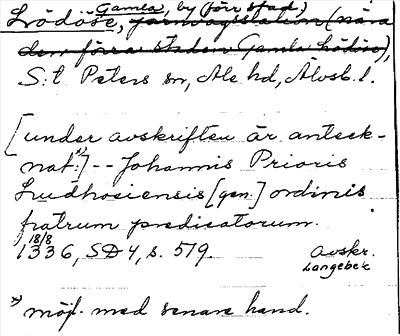 Lödöse, Gamla, by (förr stad,)
järnvägsstation (nära
den förra staden Gamla Lödöse),
S:t Peters sn, Ale hd, Älvsb. l.
[under avskriften är anteck-
nat:*)] -- Johannis Prioris
Ludhosiensis [gen.] ordinis
fratrum predicatorum.
18/8
1336, SD 4, s. 579.
Avskr.
Langebek
*) möjl. med senare hand.